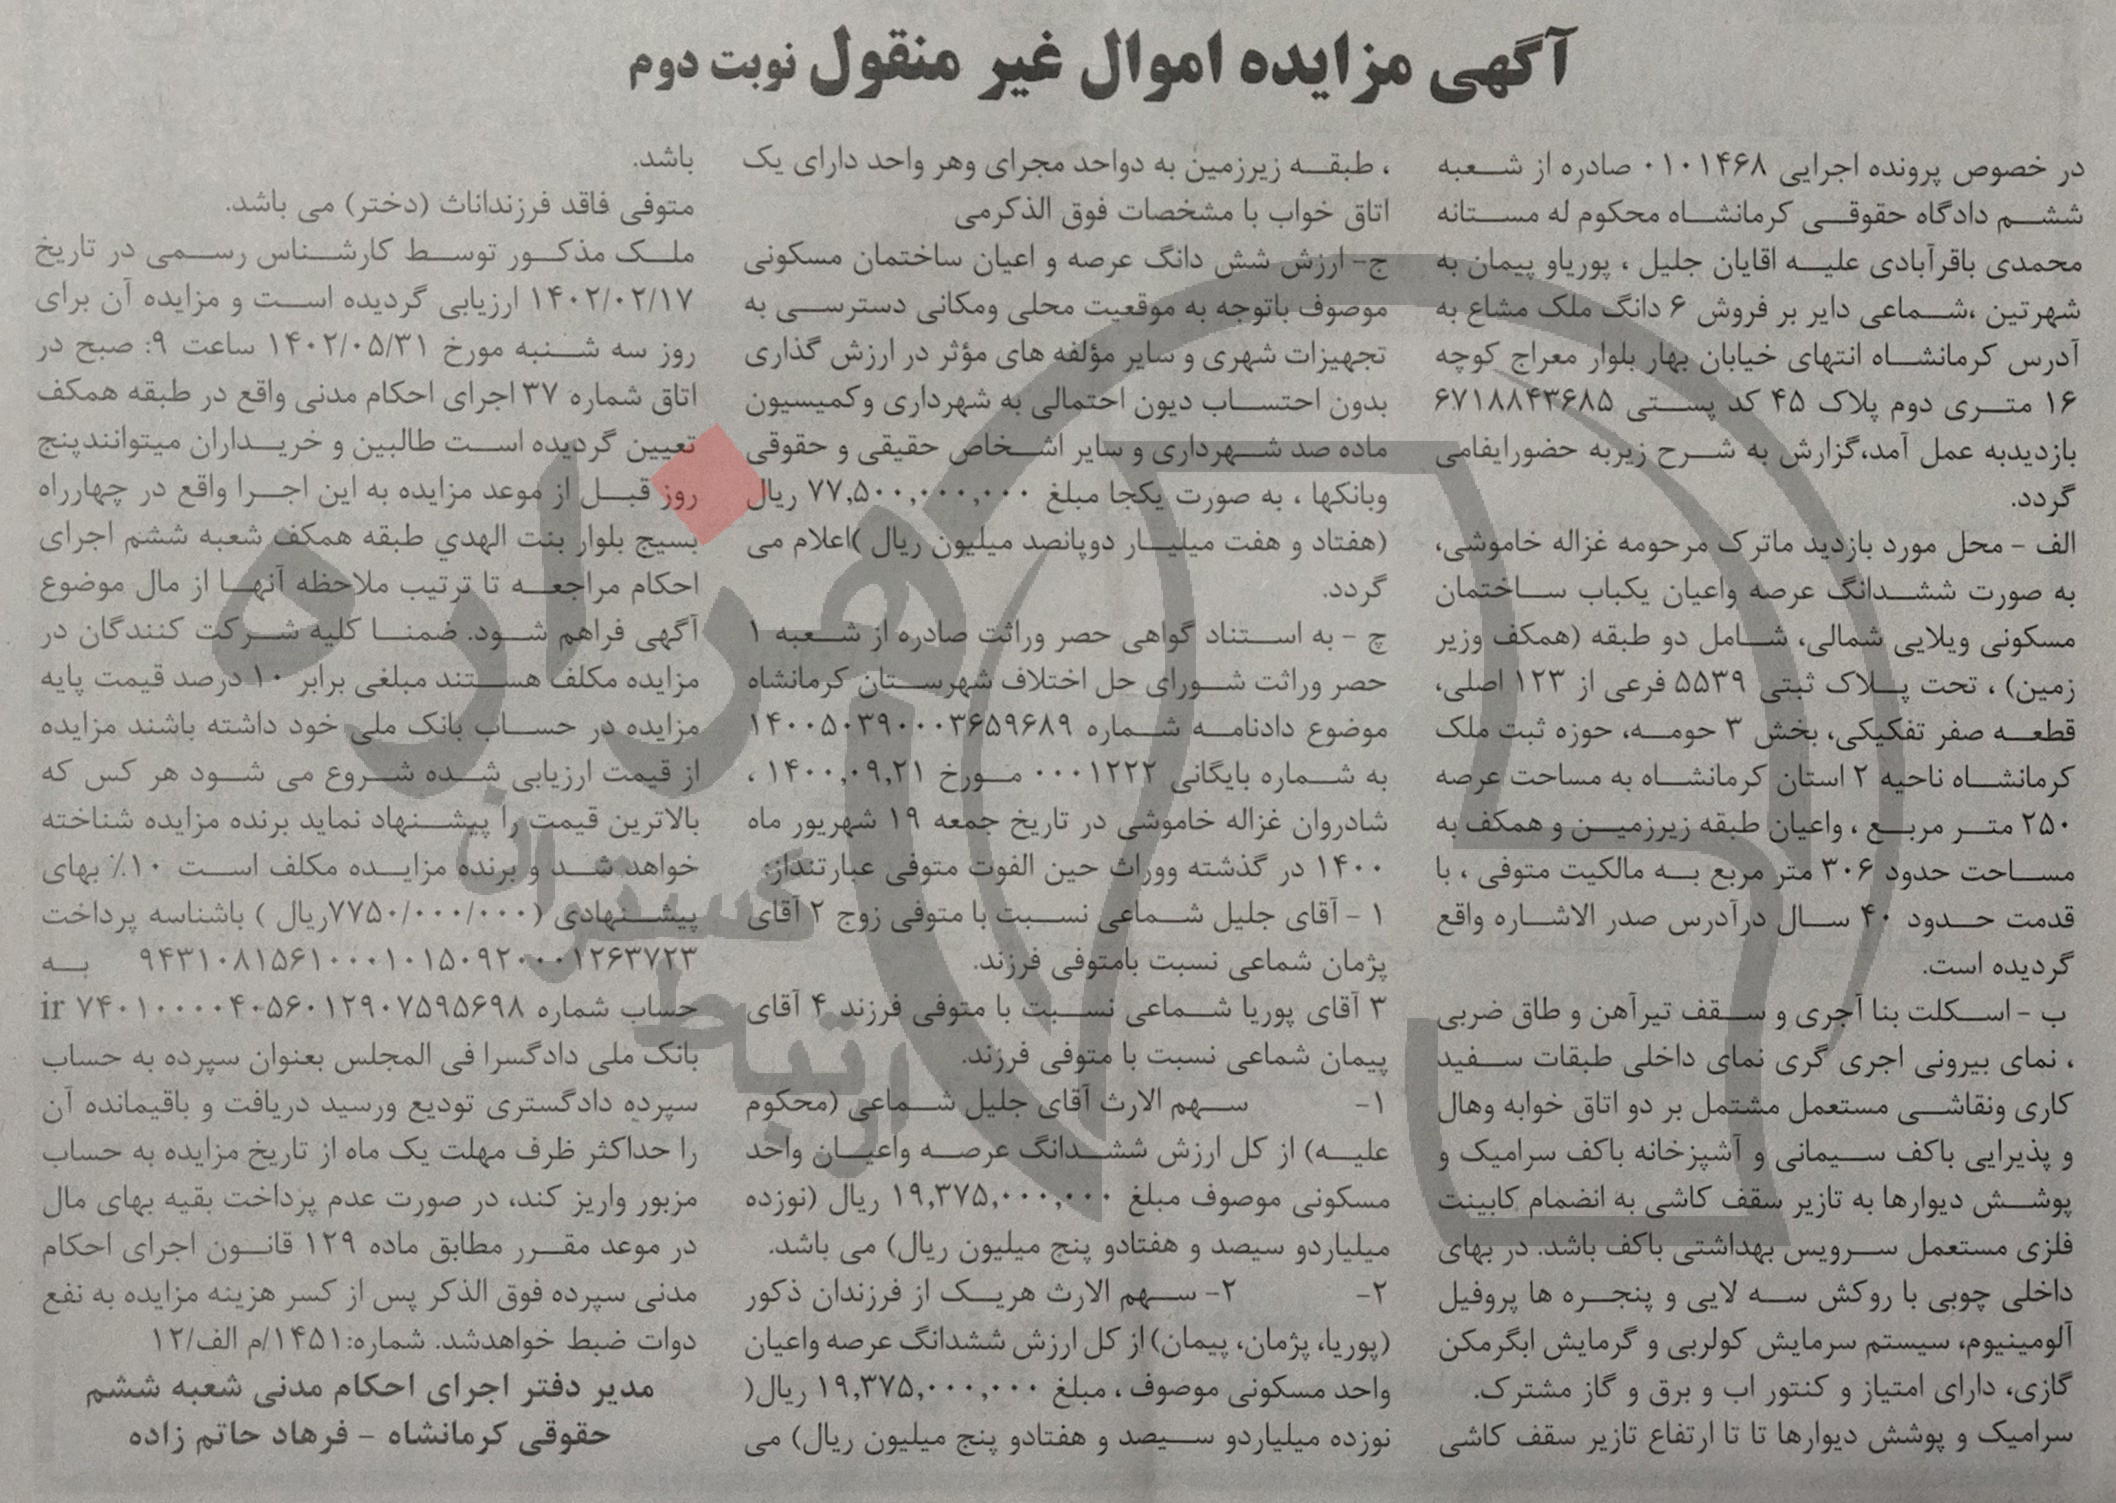 آگهی مزایده اموال غیر منقول نوبت دوم
در خصوص پرونده اجرایی ۰۱۰۱۴۶۸ صادره از شعبه
ششم دادگاه حقوقی کرمانشاه محکوم له مستانه
محمدی باقرآبادی علیه اقایان جلیل ، پوریاو پیمان به
شهرتین ،شماعی دایر بر فروش ۶ دانگ ملک مشاع به
آدرس کرمانشاه انتهای خیابان بهار بلوار معراج کوچه
۱۶ متری دوم پلاک ۴۵ کد پستی ۶۷۱۸۸۴۳۶۸۵
بازدیدبه عمل آمد،گزارش به شرح زیربه حضورایفامی
گردد.
الف - محل مورد بازدید ماترک مرحومه غزاله خاموشی،
به صورت ششدانگ عرصه واعیان یکباب ساختمان
مسکونی ویلایی شمالی، شامل دو طبقه (همکف وزیر
زمین) ، تحت پلاک ثبتی ۵۵۳۹ فرعی از ۱۲۳ اصلی،
قطعه صفر تفکیکی، بخش ۳ حومه، حوزه ثبت ملک
کرمانشاه ناحیه ۲ استان کرمانشاه به مساحت عرصه
۲۵۰ متر مربع ، واعیان طبقه زیرزمین و همکف به
مساحت حدود ۳۰۶ متر مربع به مالکیت متوفی ، با
قدمت حدود ۴۰ سال درآدرس صدر الاشاره واقع
گردیده است.
ب - اسکلت بنا آجری و سقف تیرآهن و طاق ضربی
، نمای بیرونی اجری گری نمای داخلی طبقات سفید
کاری ونقاشی مستعمل مشتمل بر دو اتاق خوابه وهال
و پذیرایی باکف سیمانی و آشپزخانه باکف سرامیک و
پوشش دیوارها به تازیر سقف کاشی به انضمام کابینت
فلزی مستعمل سرویس بهداشتی باکف باشد. در بهای
داخلی چوبی با روکش سه لایی و پنجره ها پروفیل
آلومینیوم، سیستم سرمایش کولربی و گرمایش ابگرمکن
گازی، دارای امتیاز و کنتور اب و برق و گاز مشترک.
سرامیک و پوشش دیوارها تا تا ارتفاع تازیر سقف کاشی
، طبقه زیرزمین به دواحد مجرای وهر واحد دارای یک
اتاق خواب با مشخصات فوق الذکرمی
ج- ارزش شش دانگ عرصه و اعیان ساختمان مسکونی
موصوف باتوجه به موقعیت محلی ومکانی دسترسی به
تجهیزات شهری و سایر مؤلفه های مؤثر در ارزش گذاری
بدون احتساب دیون احتمالی به شهرداری وکمیسیون
ماده صد شهرداری و سایر اشخاص حقیقی و حقوقی
وبانکها ، به صورت یکجا مبلغ ۷۷,۵۰۰,۰۰۰,۰۰۰ ریال
(هفتاد و هفت میلیار دوپانصد میلیون ریال )اعلام می
گردد.
چ - به استناد گواهی حصر وراثت صادره از شعبه ۱
حصر وراثت شورای حل اختلاف شهرستان کرمانشاه
موضوع دادنامه شماره ۱۴۰۰۵۰۳۹۰۰۰۳۶۵۹۶۸۹
به شماره بایگانی ۰۰۰۱۲۲۲ مورخ ۱۴۰۰,۰۹,۲۱ ،
شادروان غزاله خاموشی در تاریخ جمعه ۱۹ شهریور ماه
۱۴۰۰ در گذشته ووراث حین الفوت متوفی عبارتنداز:
۱ - آقای جلیل شماعی نسبت با متوفی زوج ۲ آقای
پژمان شماعی نسبت بامتوفی فرزند.
۳ آقای پوریا شماعی نسبت با متوفی فرزند ۴ آقای
پیمان شماعی نسبت با متوفی فرزند.
۱- سهم الارث آقای جلیل شماعی (محکوم
علیه) از کل ارزش ششدانگ عرصه واعیان واحد
مسکونی موصوف مبلغ ۱۹,۳۷۵,۰۰۰,۰۰۰ ریال (نوزده
میلیاردو سیصد و هفتادو پنج میلیون ریال) می باشد.
۲- ۲- سهم الارث هریک از فرزندان ذکور
(پوریا، پژمان، پیمان) از کل ارزش ششدانگ عرصه واعیان
واحد مسکونی موصوف ، مبلغ ۱۹,۳۷۵,۰۰۰,۰۰۰ ریال(
نوزده میلیاردو سیصد و هفتادو پنج میلیون ریال) می
باشد.
متوفی فاقد فرزنداناث (دختر) می باشد.
ملک مذکور توسط کارشناس رسمی در تاریخ
۱۴۰۲/۰۲/۱۷ ارزیابی گردیده است و مزایده آن برای
روز سه شنبه مورخ ۱۴۰۲/۰۵/۳۱ ساعت ۹: صبح در
اتاق شماره ۳۷ اجرای احکام مدنی واقع در طبقه همکف
تعیین گردیده است طالبین و خریداران میتوانندپنج
روز قبل از موعد مزایده به این اجرا واقع در چهارراه
بسیج بلوار بنت الهدي طبقه همکف شعبه ششم اجرای
احکام مراجعه تا ترتیب ملاحظه آنها از مال موضوع
آگهی فراهم شود. ضمنا کلیه شرکت کنندگان در
مزایده مکلف هستند مبلغی برابر ۱۰ درصد قیمت پایه
مزایده در حساب بانک ملی خود داشته باشند مزایده
از قیمت ارزیابی شده شروع می شود هر کس که
بالاترین قیمت را پیشنهاد نماید برنده مزایده شناخته
خواهد شد و برنده مزایده مکلف است ۱۰٪ بهای
پیشنهادی (۷۷۵۰/۰۰۰/۰۰۰ریال ) باشناسه پرداخت
۹۴۳۱۰۸۱۵۶۱۰۰۰۱۰۱۵۰۹۲۰۰۰۱۲۶۳۷۲۳ به
حساب شماره ir ۷۴۰۱۰۰۰۰۴۰۵۶۰۱۲۹۰۷۵۹۵۶۹۸
بانک ملی دادگسرا فی المجلس بعنوان سپرده به حساب
سپرده دادگستری تودیع ورسید دریافت و باقیمانده آن
را حداکثر ظرف مهلت یک ماه از تاریخ مزایده به حساب
مزبور واریز کند، در صورت عدم پرداخت بقیه بهای مال
در موعد مقرر مطابق ماده ۱۲۹ قانون اجرای احکام
مدنی سپرده فوق الذکر پس از کسر هزینه مزایده به نفع
دوات ضبط خواهدشد. شماره:۱۴۵۱/م الف/۱۲
مدیر دفتر اجرای احکام مدنی شعبه ششم
حقوقی کرمانشاه - فرهاد حاتم زاده
هزاره
گستران
ارتباط